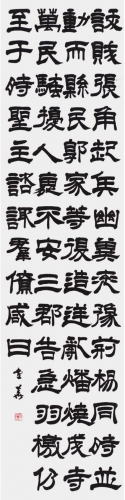 訞賊張角起兵幽冀兖豫荆楊同時並
動而縣民郭家等復造逆亂燔燒城寺
萬民騷擾人褱不安三郡告急羽檄仍
至于時聖主諮諏羣僚咸曰